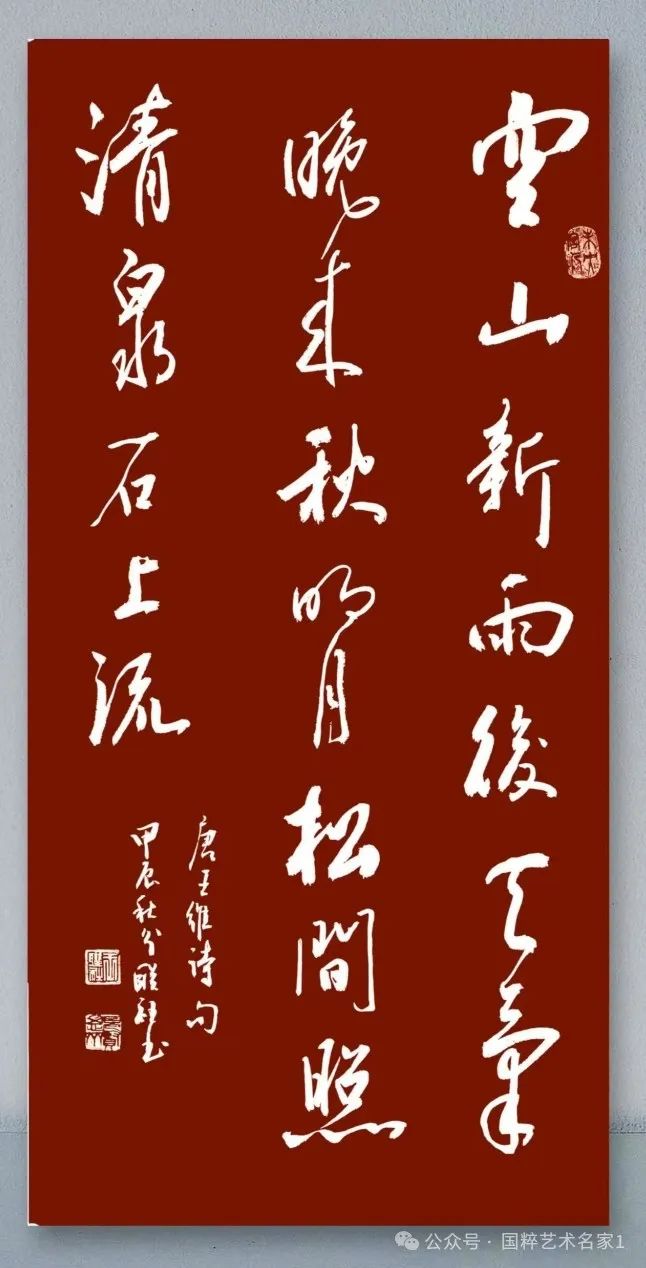 空山新雨後天氣
晚来秋明月松間照
清泉石上流
唐王維诗句
甲辰秋分书
公众号 · 国粹艺术名家1